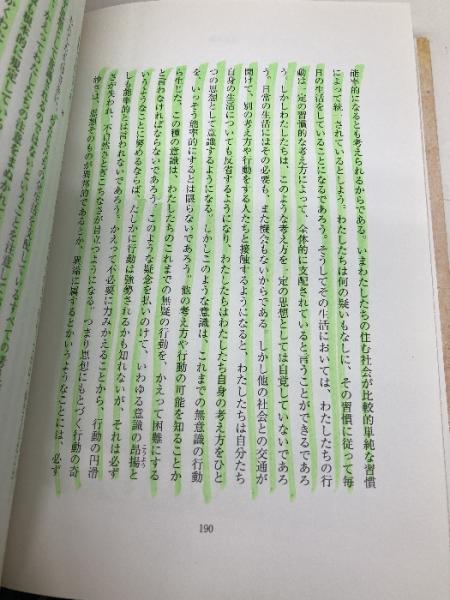 能率的になるとも考えられるからである。いまわたしたちの住む社会が比較的単純な習慣
によって統一されているとしよう。わたしたちは何の疑いもなしに、その習慣に従って毎
日の生活をしていることになるであろう。そうしてその生活においては、わたしたちの行
動は一定の習慣的な考え方によって、全体的に支配されていると言うことができるであろ
う。しかしわたしたちは、このような考え方を一定の思想としては自覚していないであろ
う。日常の生活にはその必要も、また機会もないからである。しかし他の社会との交通が
開けて、別の考え方や行動をする人たちと接触するようになると、わたしたちは自分たち
自身の生活についても反省するようになり、わたしたちはわたしたち自身の考え方をひと
つの思想として意識するようになる。しかしこのような意識は、これまでの無意識の行動
を、いっそう能率的にするとは限らないであろう。他の考え方や行動の可能を知ることか
ら生じた、この種の意識は、わたしたちのこれまでの無疑の行動を、かえって困難にする
と言わなければならないであろう。このような疑念を払いのけて、いわゆる意識の昂揚と
いうようなことに努めるならば、たしかに行動は強勢されるかも知れないが、それは必ず
しも能率的とは言われないであろう。かえって不必要に力みかえることから、行動の円滑
さが失われ、不自然さとぎこちなさが目立つようになる。つまり思想にもとづく行動の奇
妙さは、思想そのものが異邦的であるとか、異端に属するとかいうようなことには、必ず
こうよう
190